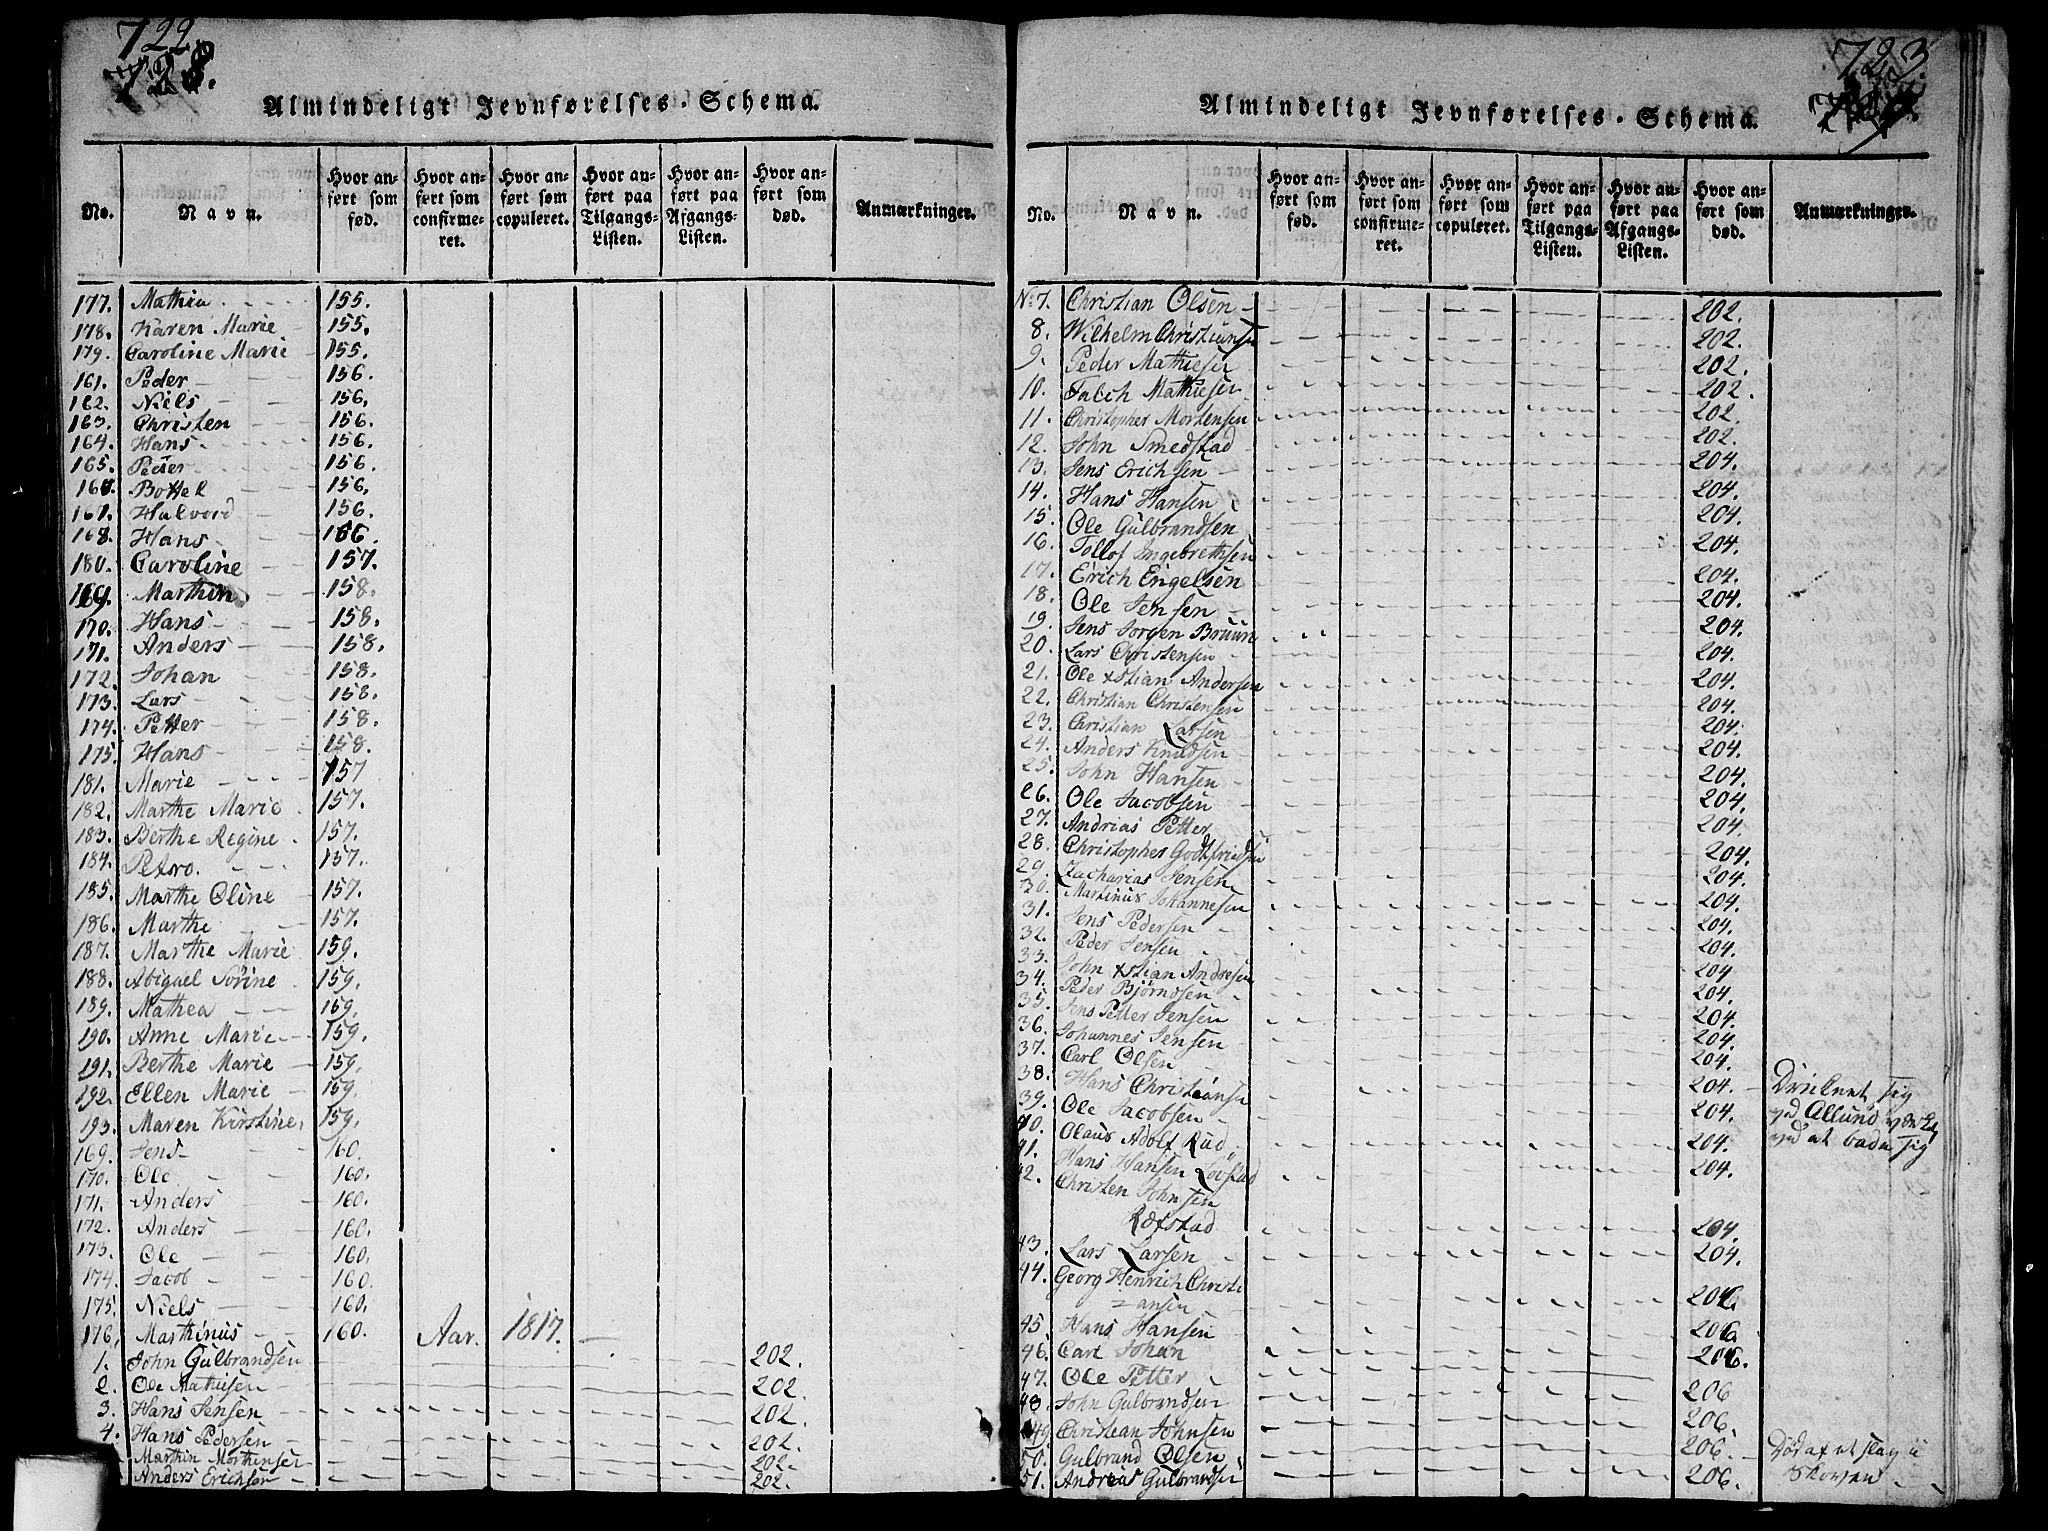 722
728.
Almindeligt Jevnførelses-Schema.
No.
Navn.
Hvor anført som fød.
Hvor anført som confirmeret.
Hvor anført som copuleret.
Hvor anført paa Tilgangs-Listen.
Hvor anført paa Afgangs-Listen.
Hvor anført som død.
Anmærkninger.
177. Mathia 155.
178. Karen Marie 155.
179. Caroline Marie 155.
161. Peder 156.
162. Niels 156.
163. Christen 156.
164. Hans 156.
165. Peder 156.
166. Bottel 156.
167. Halvord 156.
168. Hans 156.
180. Caroline 157.
169. Marthin 158.
170. Hans 158.
171. Anders 158.
172. Johan 158.
173. Lars 158.
174. Petter 158.
175. Hans 158.
181. Marie 157
182. Marthe Marie 157.
183. Berthe Regine 157.
184. Petro. 157.
185. Marthe Oline 157.
186. Marthe 157.
187. Marthe Marie 159.
188. Abigael Sørine 159.
189. Mathea 159.
190. Anne Marie 159.
191. Berthe Marie 159.
192. Ellen Marie 159.
193. Maren Kirstine 159.
169. Jens 160.
170. Ole 160.
171. Anders 160.
172. Anders 160.
173. Ole 160.
174. Jacob 160.
175. Niels 160.
176. Marthinus 160. Aar. 1817.
1. John Gulbrandsen 202.
2. Ole Mathisen 202.
3. Hans Jensen 202.
4. Hans Pedersen 202.
Marthin Morthinsen 202.
Anders Erichsen 202.
723.
Almindeligt Jevnførelses-Schema.
No.
Navn.
Hvor anført som fød.
Hvor anført som confirmeret.
Hvor anført som copuleret.
Hvor anført paa Tilgangs-Listen.
Hvor anført paa Afgangs-Listen.
Hvor anført som død.
Anmærkninger.
No 7. Christian Olsen 202.
8. Wilhelm Christiansen 202.
9. Peder Mathiesen 202.
10. Falch Mathiesen 202.
11. Christopher Mortensen 202.
12. John Smedstad 202.
13. Jens Erichsen 204.
14. Hans Hansen 204.
15. Ole Gulbrandsen 204.
16. Tollof Ingebrethsen 204.
17. Erich Engelsen 204.
18. Ole Jensen 204.
19. Jens Jørgen Bruun 204.
20. Lars Christensen 204.
21. Ole xstian Andersen 204.
22. Christian Christensen 204.
23. Christian Larsen 204.
24. Anders Knudsen 204.
25. John Hansen 204.
26. Ole Jacobsen 204.
27. Andrias Petter 204.
28. Christopher Godtfriedsen 204.
29. Zacharias Jensen 204.
30. Martinus Johannesen 204.
31. Jens Pedersen 204.
32. Peder Jensen 204.
33. John xstian Andresen 204
34. Peder Bjørndsen 204.
35. Jens Petter Jensen 204.
36. Johannes Jensen 204.
37. Carl Olsen 204.
38. Hans Christiansen 204.
39. Ole Jacobsen 204.
40. Olaus Adolf Rud
41. Hans Hansen 204.
42. Christen Johnsen
204.
43. Lars Larsen 204.
44. Georg Henrich Christi
=ansen 206
45. Hans Hansen 206
46. Carl Johan 206.
47. Ole Petter 206
48. John Gulbrandsen 206.
49. Christian Johnsen 206.
50. Gulbrand Olsen
51. Andreas Gulbrandsen 206.
ved at bade sig